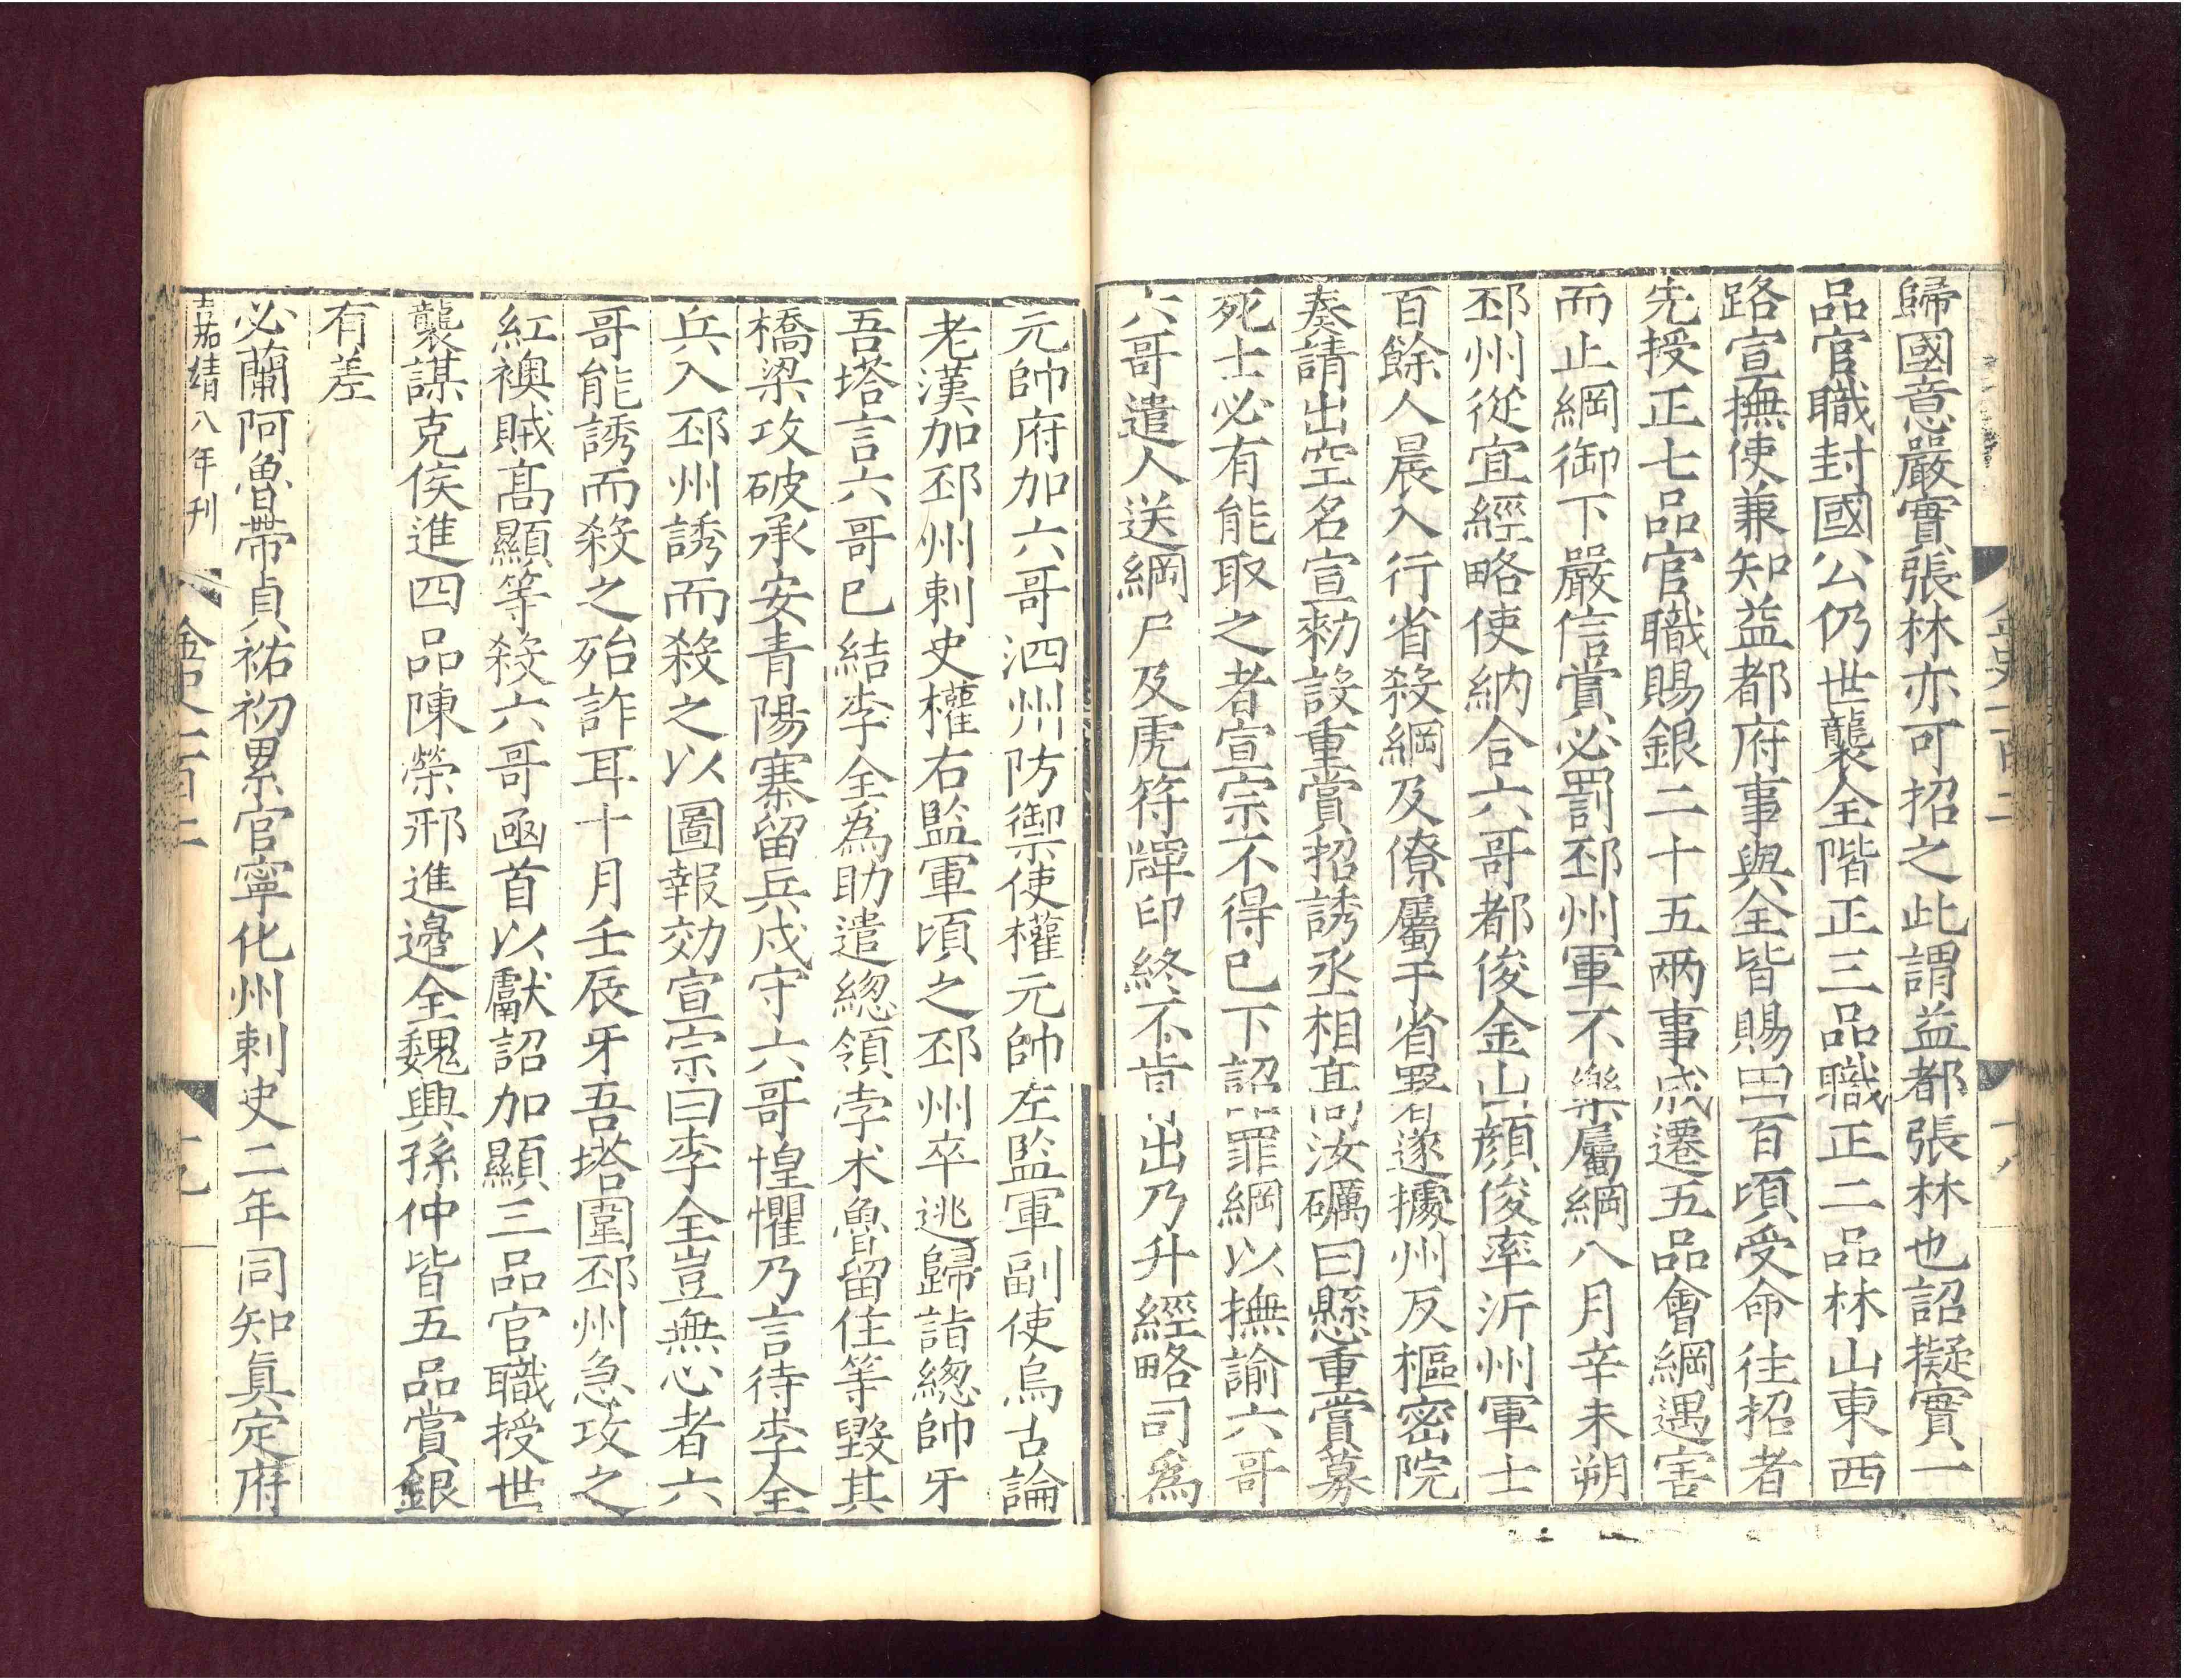 歸國意嚴實張林亦可招之此謂益都張林也詔擬實一
品官職封國公仍世襲全階正三品職正二品林山東西
路宣撫使兼知益都府事與全皆賜田百頃受命往招者
先授正七品官職賜銀二十五兩事成遷五品會綱遇害
而止綱御下嚴信賞必罰邳州軍不樂屬綱八月辛未朔
邳州從宜經略使納合六哥都俊金山顏俊率沂州軍士
百餘人晨入行省殺綱及僚屬于省署遂據州反樞密院
奏請出空名宣勑設重賞招誘丞相高汝礪曰懸重賞募
死士必有能取之者宣宗不得已下詔罪綱以撫諭六哥
六哥遣人送綱尸及虎符牌印終不肯出乃升經略司爲
元帥府加六哥泗州防禦使權元帥左監軍副使烏古論
老漢加邳州刺史權右監軍頃之邳州卒逃歸詣緫帥牙
吾塔言六哥已結李全為助遣緫領孛术魯留住等毀其
橋梁攻破承安青陽寨留兵戍守六哥惶懼乃言待李全
兵入邳州誘而殺之以圖報効宣宗曰李全豈無心者六
哥能誘而殺之殆詐耳十月壬辰牙吾塔圍邳州急攻之
紅襖賊高顯等殺六哥函首以獻詔加顯三品官職授世
襲謀克侯進四品陳榮邢進邊全魏興孫仲皆五品賞銀
有差
必蘭阿魯帶貞祐初累官寧化州刺史二年同知真定府
嘉靖八年刊
金史一百二
十九